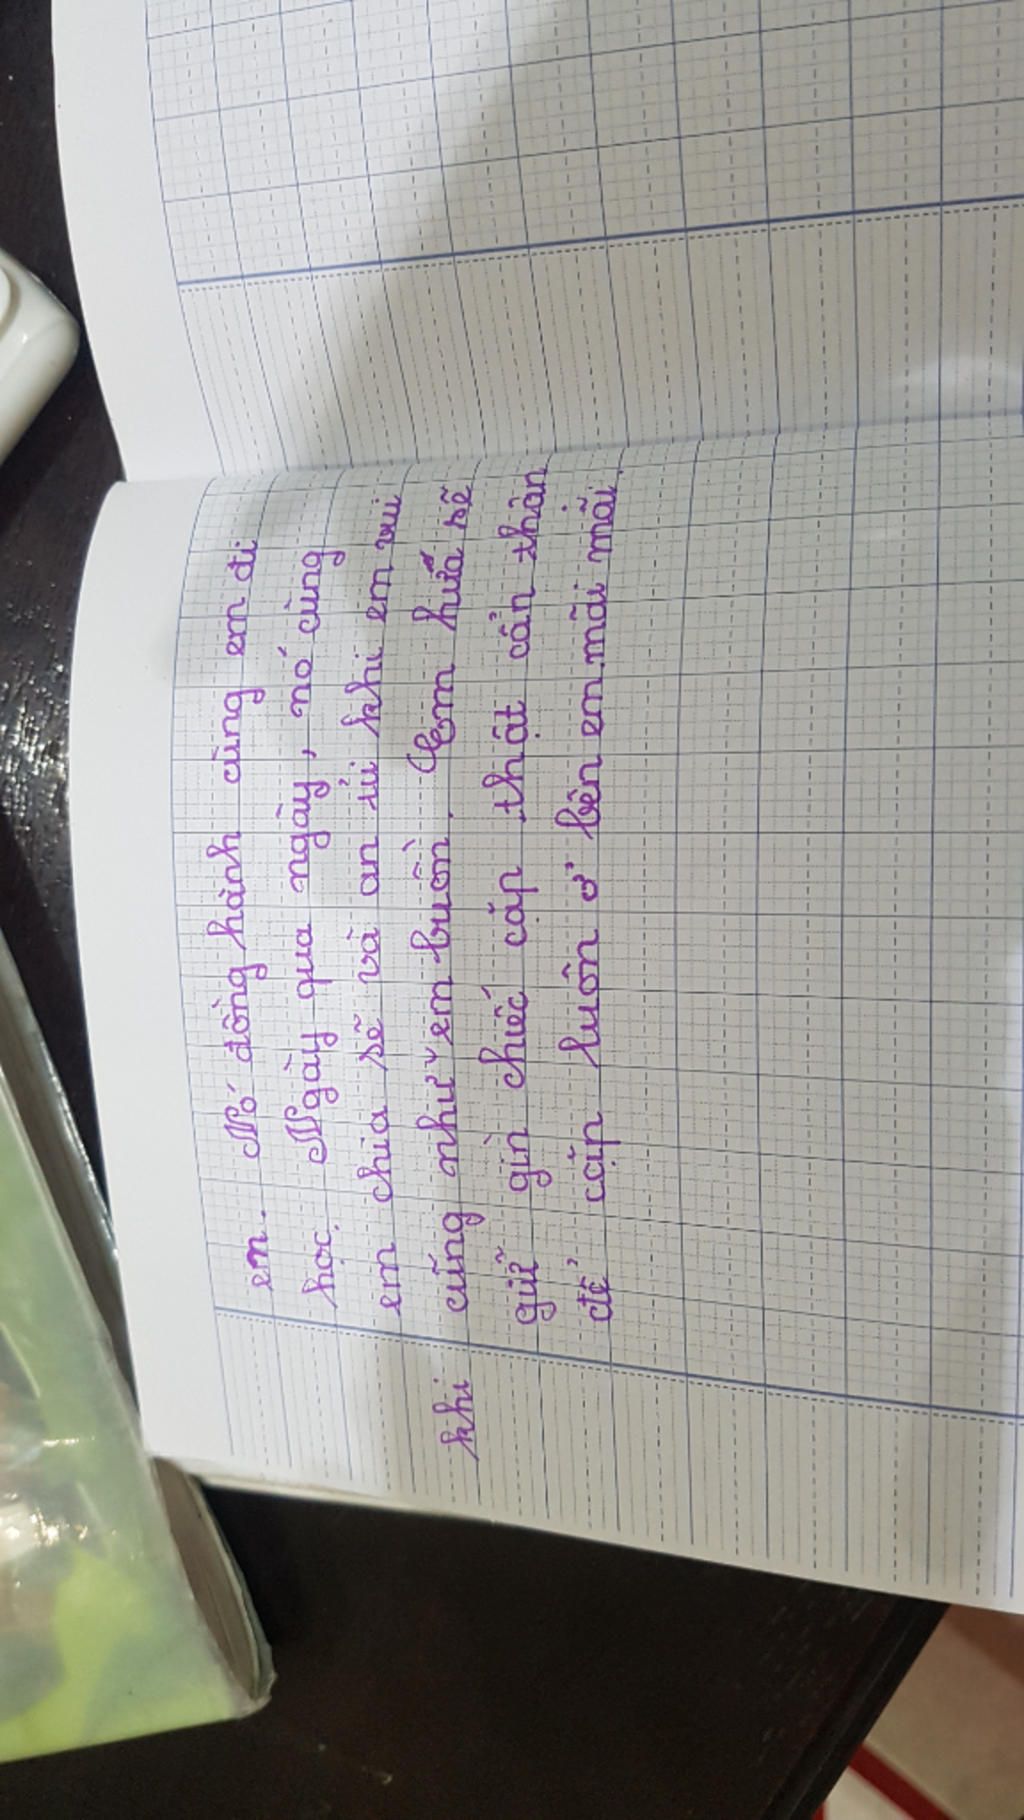 em. Nó đồng hành cùng em đi
học. Ngày qua ngày, nó cùng
em chia sẽ và an ủi khi em vui
cũng như em buồn. Em hứa sẽ
khi
giữ gìn chiếc cặp thật cẩn thận
để cặp luôn ở bên em mãi mãi.